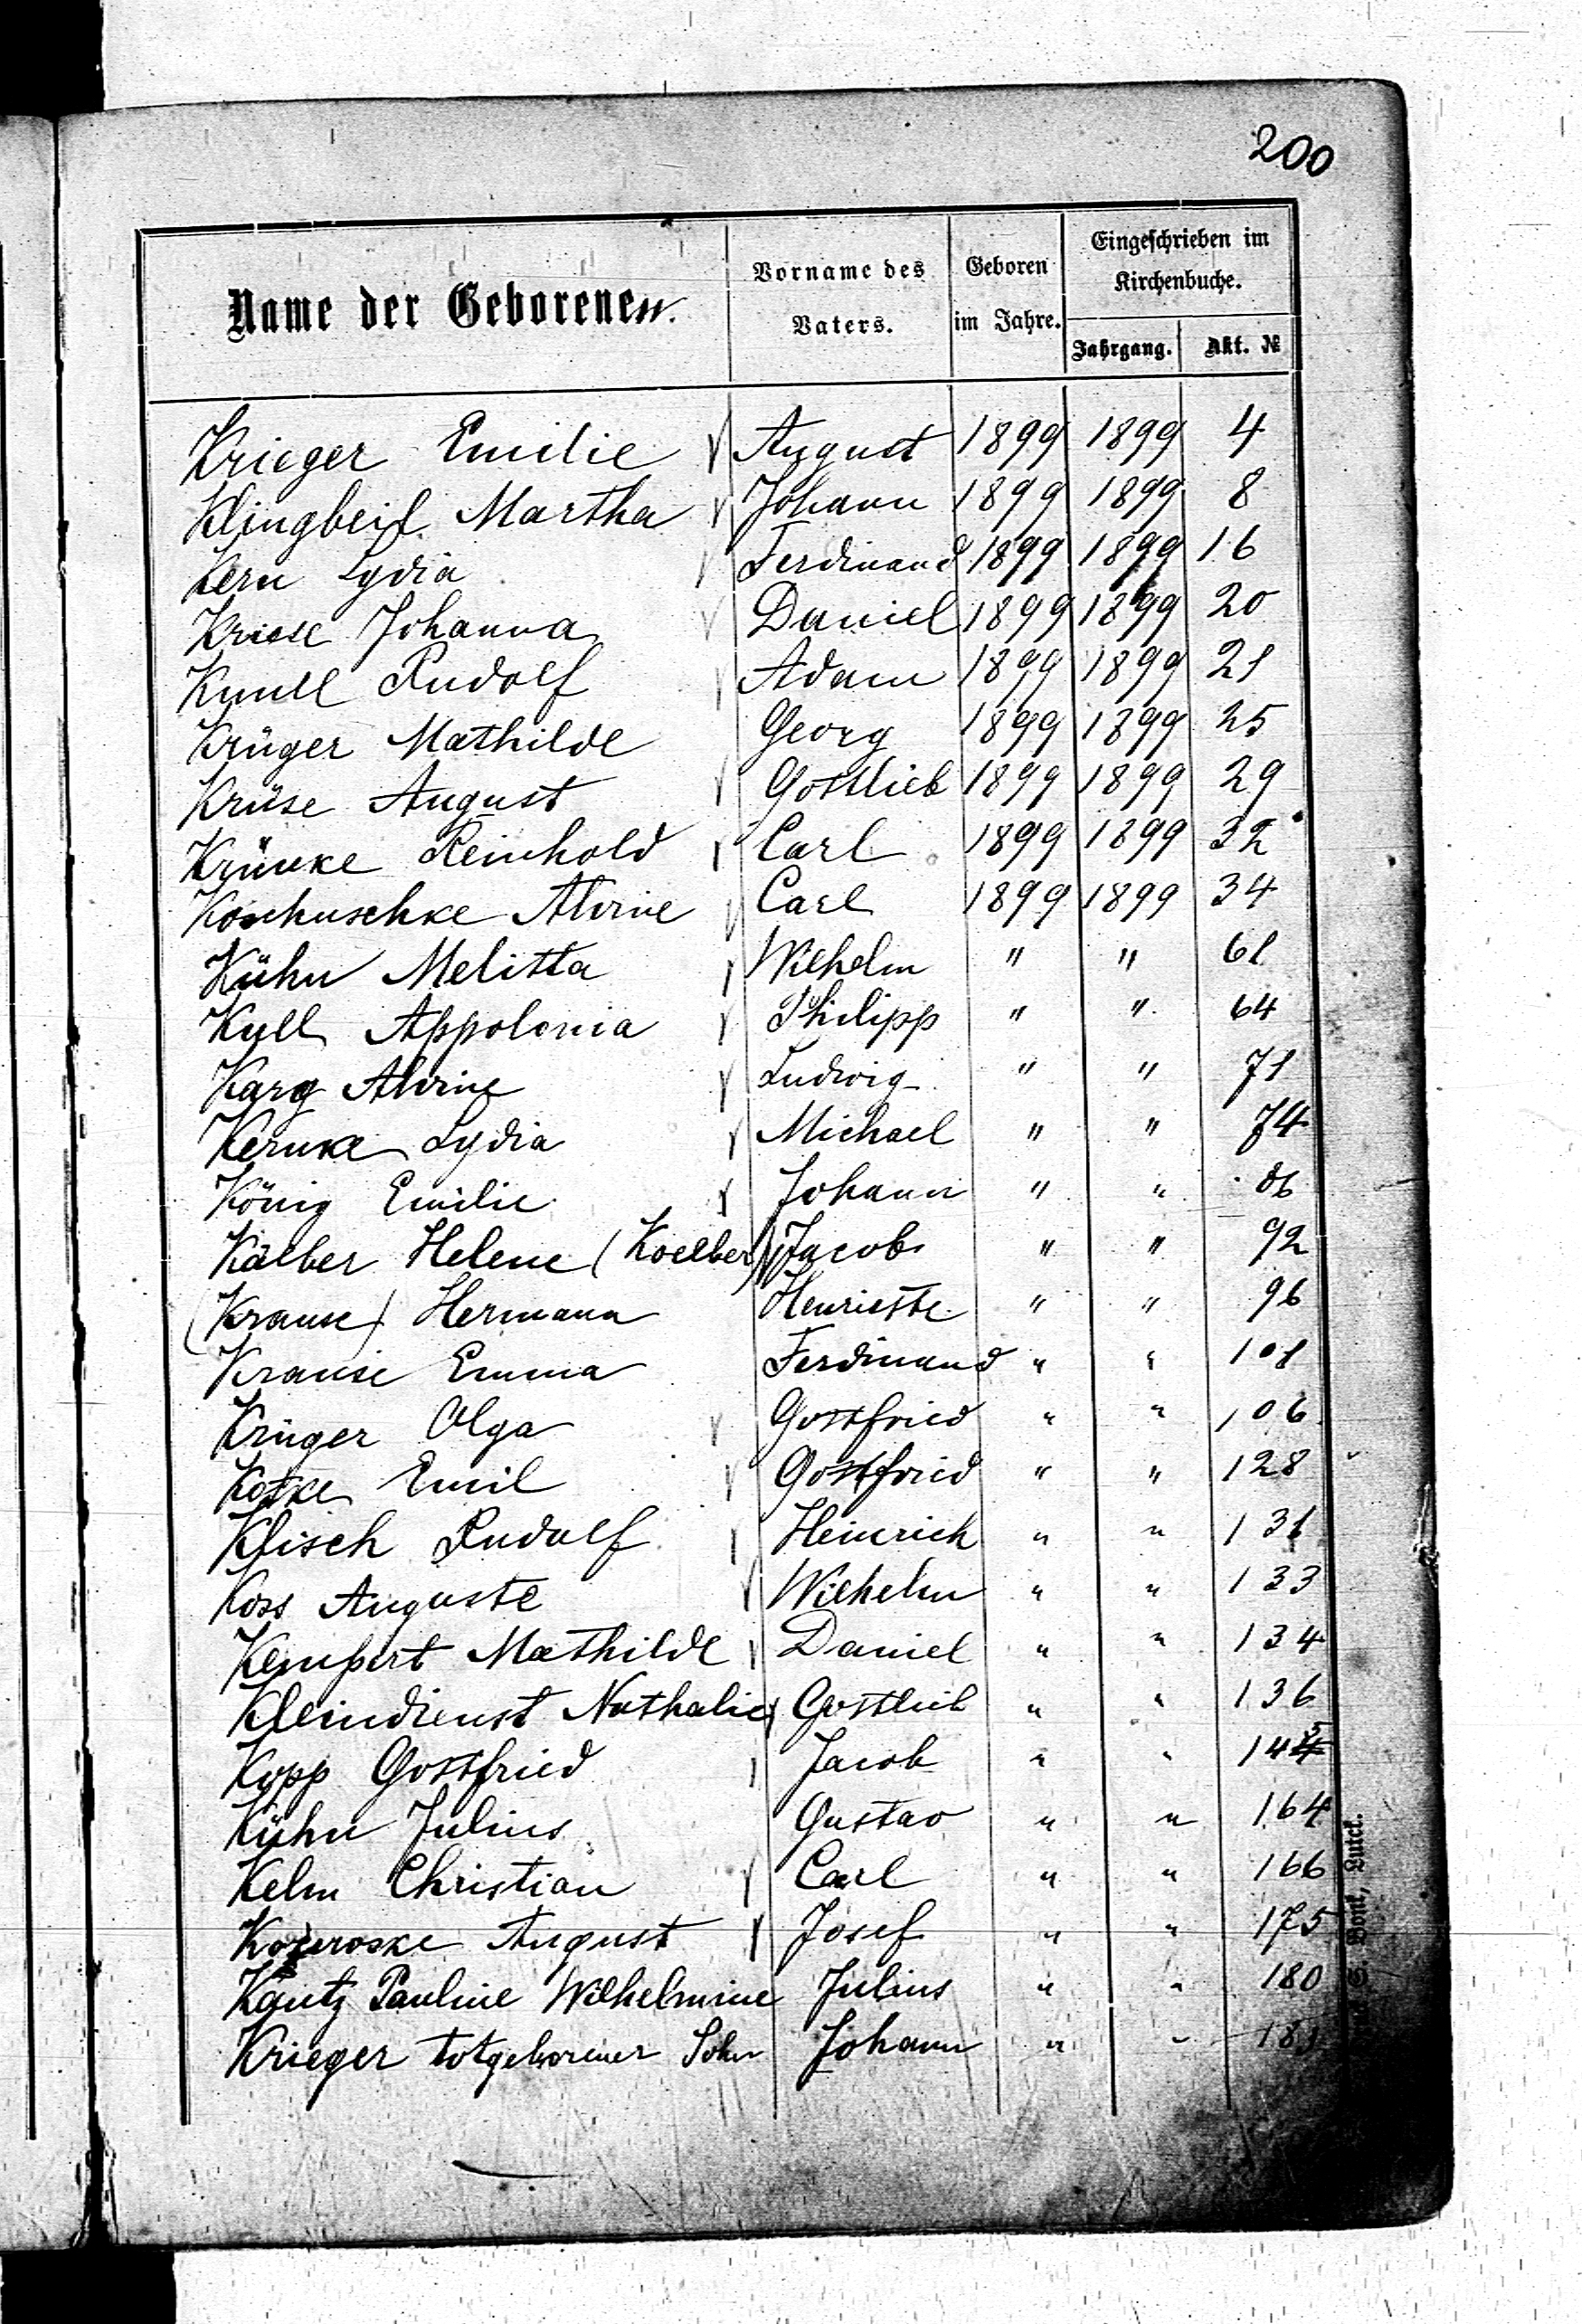 200
Name der Geborenen.
Vorname des Vaters.
Geboren im Jahre.
Eingeschrieben im Kirchenbuche.
Jahrgang. Akt. №
Krieger Emilie August 1899 1899 4
Klingbeil Martha Johann 1899 1899 8
Kern Lydia Ferdinand 1899 1899 16
Kriese Johanna Daniel 1899 1899 20
Rudolf Adam 1899 1899 21
Krüger Mathilde Georg 1899 1899 25
Krüse August Gottlieb 1899 1899 29
Krünke Reinhold Carl 1899 1899 32
Koschuschke Alvine Carl 1899 1899 34
Kühn Melitta Wilhelm " " 61
Kull Appolonia Philipp " " 64
Karg Alvine Ludwig " " 71
Kernke Lydia Michael " " 74
König Emilie Johann " " 86
Kälber Helene (Koelber) Jacob " " 92
(Krause) Hermann Henriette " " 96
Krause Emma Ferdinand " " 101
Krüger Olga Gottfried " " 106
Kotke Emil Gottfried " " 128
Klisch Rudolf Heinrich " " 131
Koss Auguste Wilhelm " " 133
Kempert Mathilde Daniel " " 134
Kleindienst Nathalie Gottlieb " " 136
Kopp Gottfried Jacob " " 145
Kühn Julius Gustav " " 164
Kelm Christian Carl " " 166
August Josef " " 175
Kautz Pauline Wilhelmine Julius " " 180
Krieger totgeborener Sohn Johann " "